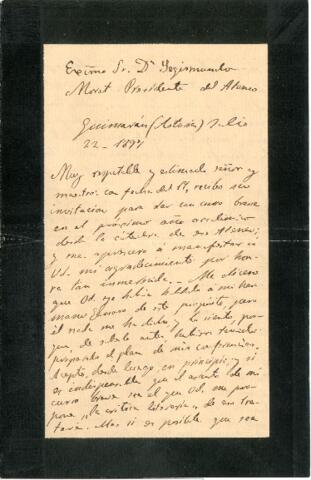 Excmo Sr. Dn Segismundo
Moret Presidente del Ateneo
Guimarán (Asturias) Julio
22-1897
Muy respetable y estimado señor y
maestro: con fecha del 17, recibo su
invitación para dar un curso breve
en el próximo año académico
desde la cátedra de ese Ateneo;
y me apresuro a manifestar a
Ud. mi agradecimiento por hon-
ra tan inmerecida. Me dice
que Ud. ya había hablado a mi her-
mano Genaro de este propósito, pero
él nada me ha dicho y lo siento, por-
que de saberlo antes, hubiera tenido
preparado el plan de mis conferencias.
Acepto, desde luego, en principio, y si
es indispensable que el asunto de mi
curso breve sea el que Ud. me pro-
pone, "la crítica literaria", de eso tra-
taría. Mas si es posible que sea